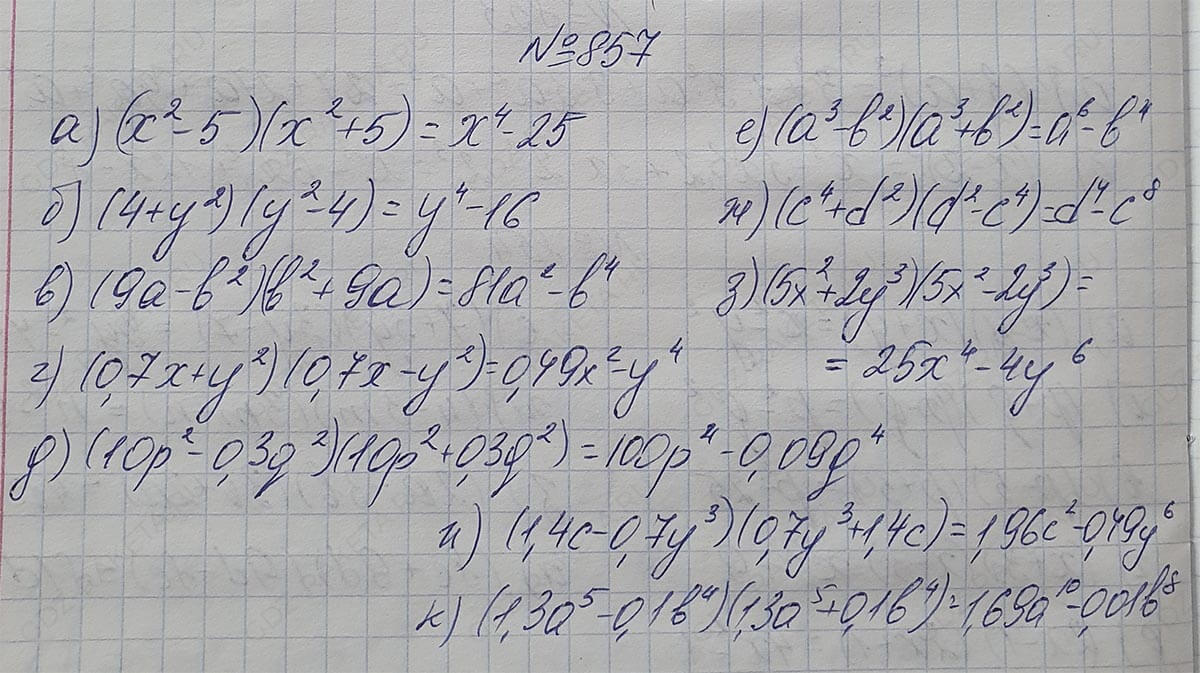 №857
а) (x²-5)(x²+5)=x⁴-25
б) (4+y²)(y²-4)=y⁴-16
в) (9a-b²)(b²+9a)=81a²-b⁴
г) (0,7x+y²)(0,7x-y²)=0,49x²-y⁴
д) (10p²-0,3q²)(10p²+0,3q²)=100p⁴-0,09q⁴
е) (a³-b²)(a³+b²)=a⁶-b⁴
ж) (c⁴+d²)(d²-c⁴)=d⁴-c⁸
з) (5x²+2y³)(5x²-2y³)=
= 25x⁴-4y⁶
и) (1,4c-0,7y³)(0,7y³+1,4c)=1,96c²-0,49y⁶
к) (1,3a⁵-0,1b⁴)(1,3a⁵+0,1b⁴)=1,69a¹⁰-0,01b⁸